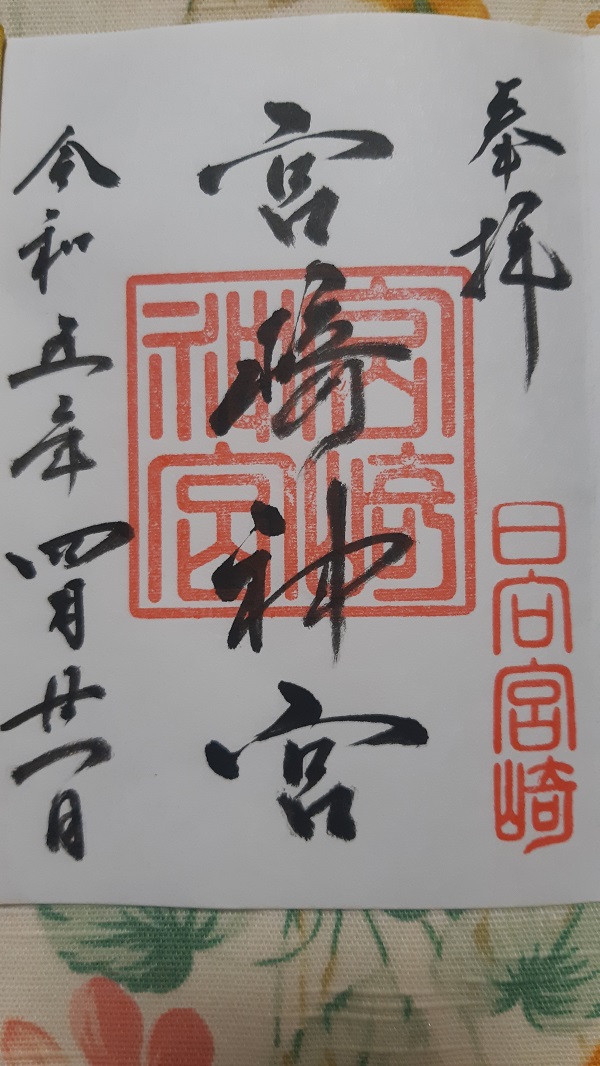 奉拝
日向宮崎
宮崎神宮
宮崎神宮
令和五年四月廿一日